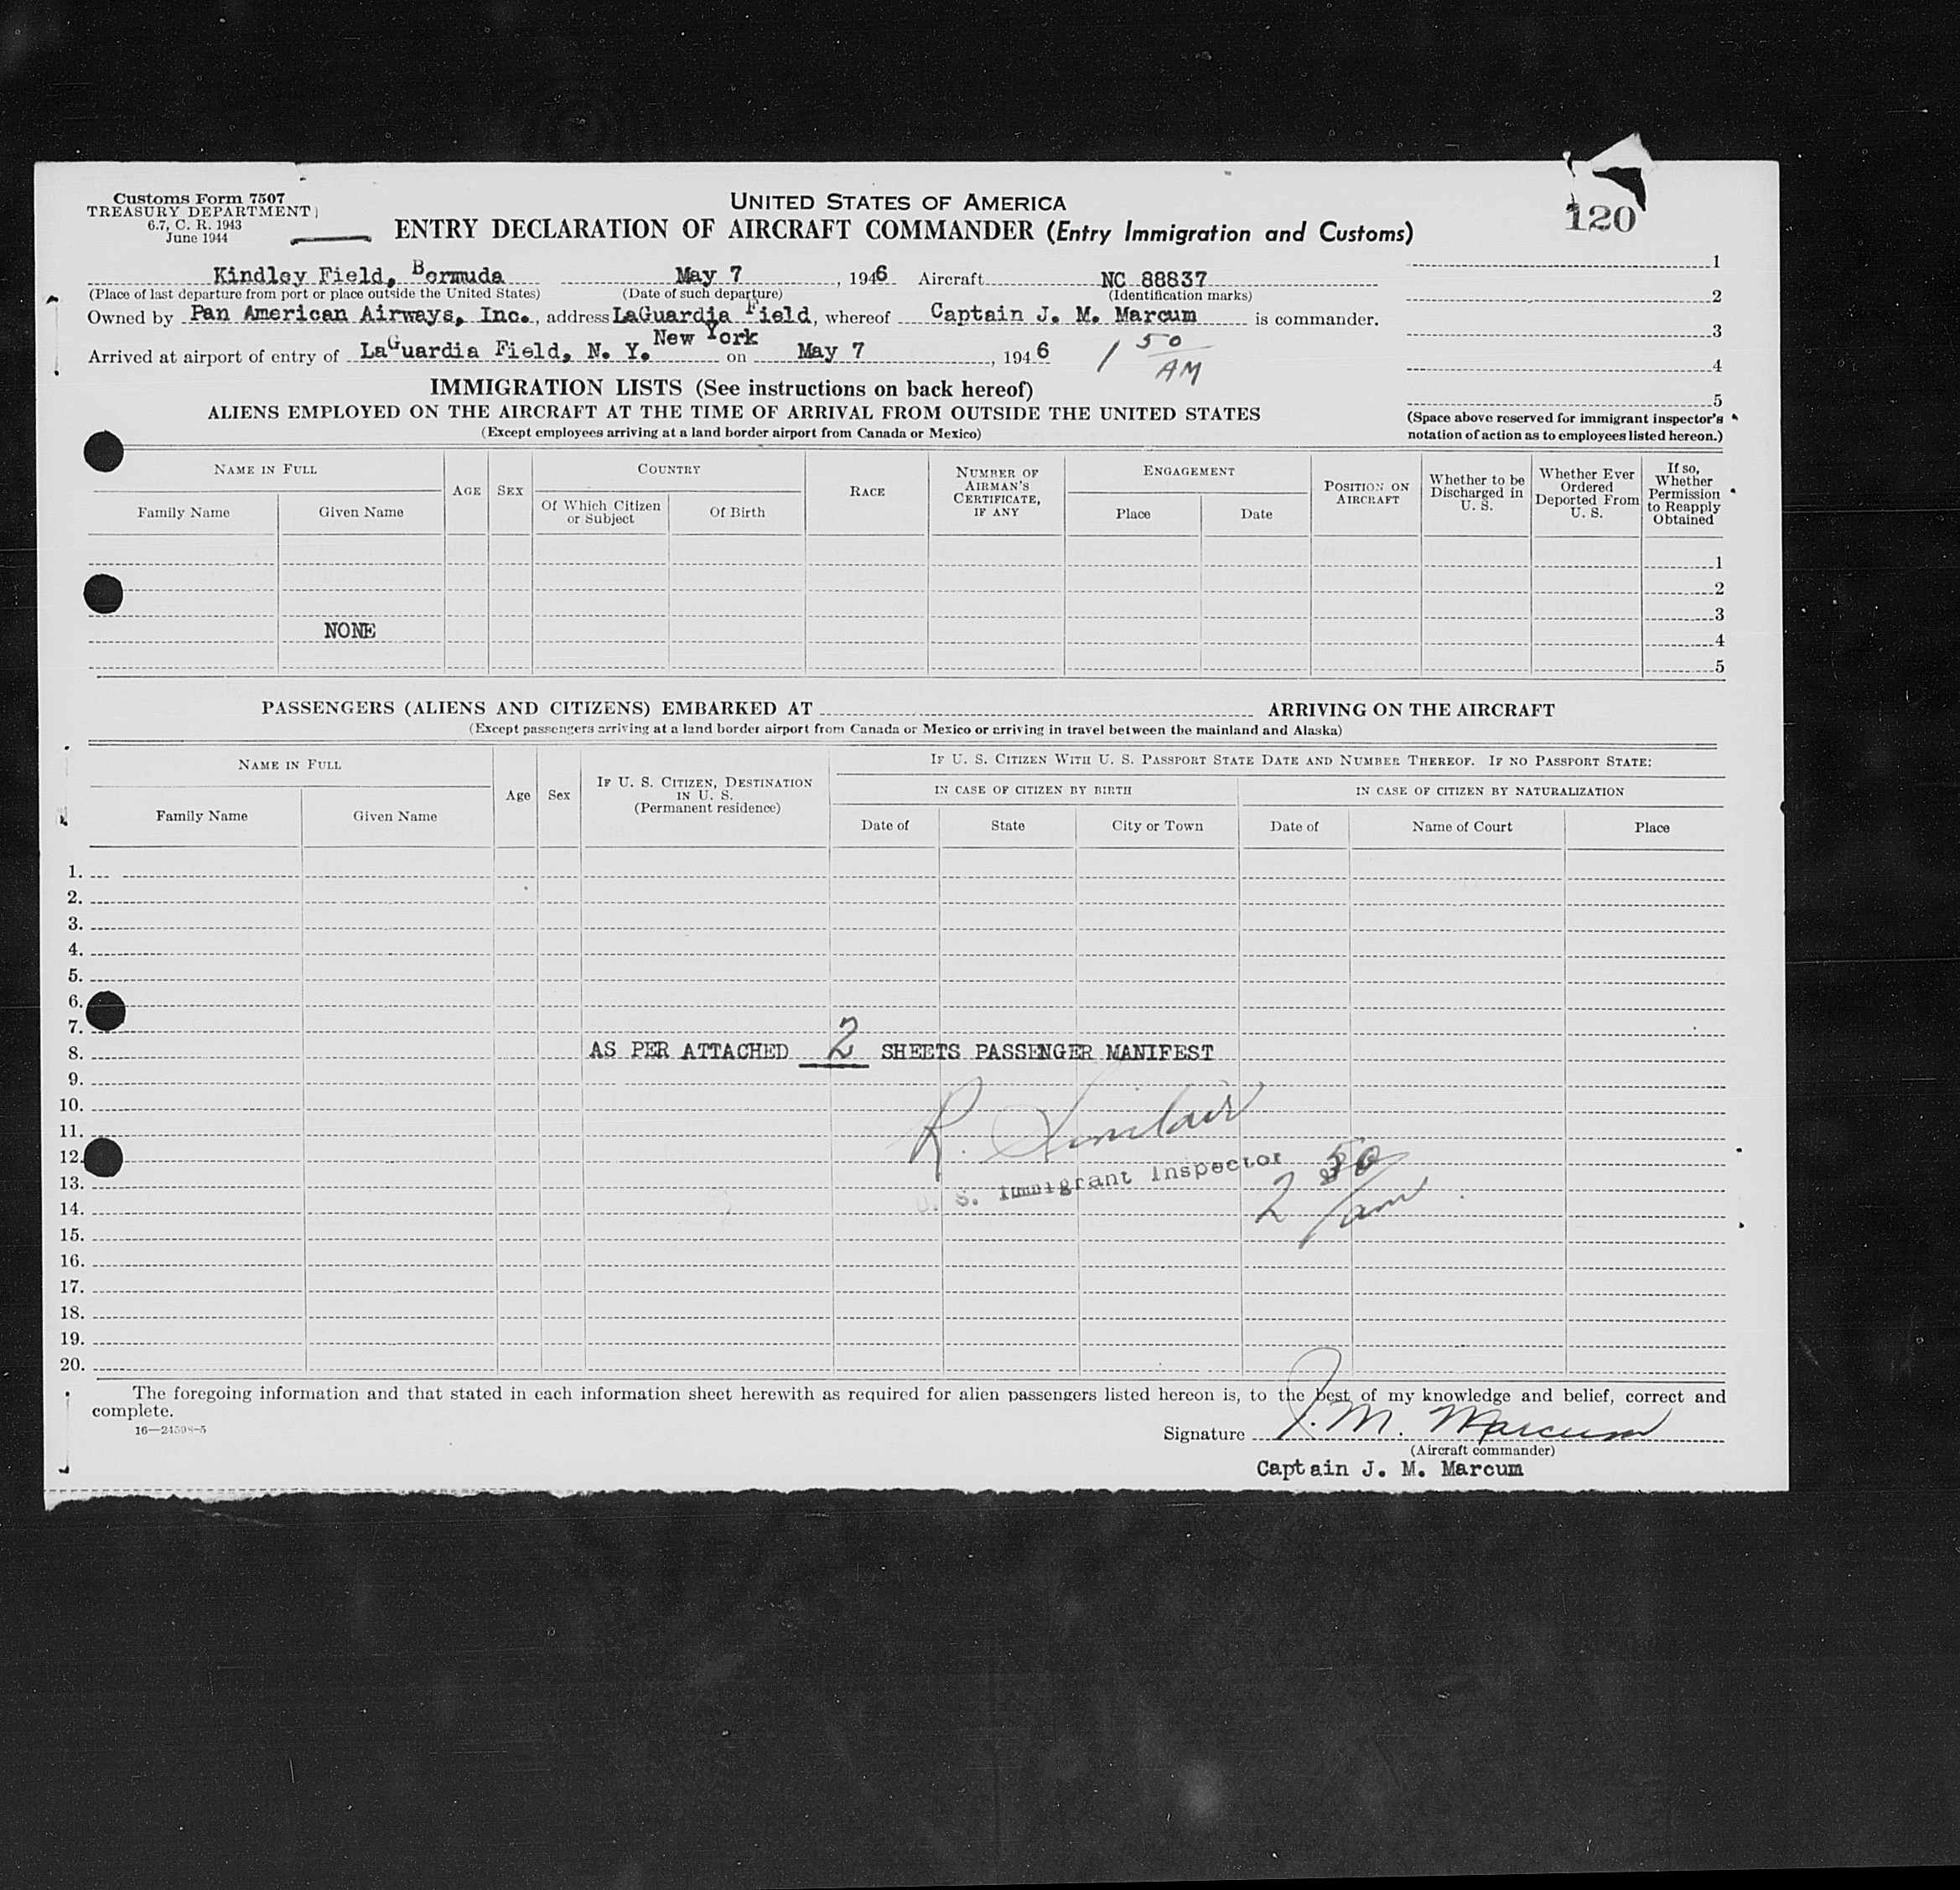 Customs Form 7507
TREASURY DEPARTMENT
6.7, C. R. 1943
June 1944
UNITED STATES OF AMERICA
ENTRY DECLARATION OF AIRCRAFT COMMANDER (Entry Immigration and Customs)
120
Kindley Field, Bermuda May 7, 1946 Aircraft NC 88837
(Place of last departure from port or place outside the United States) (Date of such departure) (Identification marks)
Owned by Pan American Airways, Inc., address LaGuardia Field, whereof Captain J. M. Marcum is commander.
New York
Arrived at airport of entry of LaGuardia Field, N. Y. on May 7, 1946 1 50 AM
1
2
3
4
5
(Space above reserved for immigrant inspector's
notation of action as to employees listed hereon.)
IMMIGRATION LISTS (See instructions on back hereof)
ALIENS EMPLOYED ON THE AIRCRAFT AT THE TIME OF ARRIVAL FROM OUTSIDE THE UNITED STATES
(Except employees arriving at a land border airport from Canada or Mexico)
NAME IN FULL
Family Name
Given Name
AGE
SEX
COUNTRY
Of Which Citizen
or Subject
Of Birth
RACE
NUMBER OF
AIRMAN'S
CERTIFICATE,
IF ANY
ENGAGEMENT
Place
Date
POSITION ON
AIRCRAFT
Whether to be
Discharged in
U. S.
Whether Ever
Ordered
Deported From
U. S.
If so,
Whether
Permission
to Reapply
Obtained
1
2
3
NONE
4
5
PASSENGERS (ALIENS AND CITIZENS) EMBARKED AT ARRIVING ON THE AIRCRAFT
(Except passengers arriving at a land border airport from Canada or Mexico or arriving in travel between the mainland and Alaska)
NAME IN FULL
Family Name
Given Name
Age
Sex
IF U. S. CITIZEN, DESTINATION
IN U. S.
(Permanent residence)
IF U. S. CITIZEN WITH U. S. PASSPORT STATE DATE AND NUMBER THEREOF. IF NO PASSPORT STATE:
IN CASE OF CITIZEN BY BIRTH
IN CASE OF CITIZEN BY NATURALIZATION
Date of
State
City or Town
Date of
Name of Court
Place
1.
2.
3.
4.
5.
6.
7.
8. AS PER ATTACHED 2 SHEETS PASSENGER MANIFEST
9.
10.
11. R. Sinclair
12.
13. U. S. Immigrant Inspector 2 50 am
14.
15.
16.
17.
18.
19.
20.
The foregoing information and that stated in each information sheet herewith as required for alien passengers listed hereon is, to the best of my knowledge and belief, correct and
complete.
16—24598-5
Signature J. M. Marcum
(Aircraft commander)
Captain J. M. Marcum